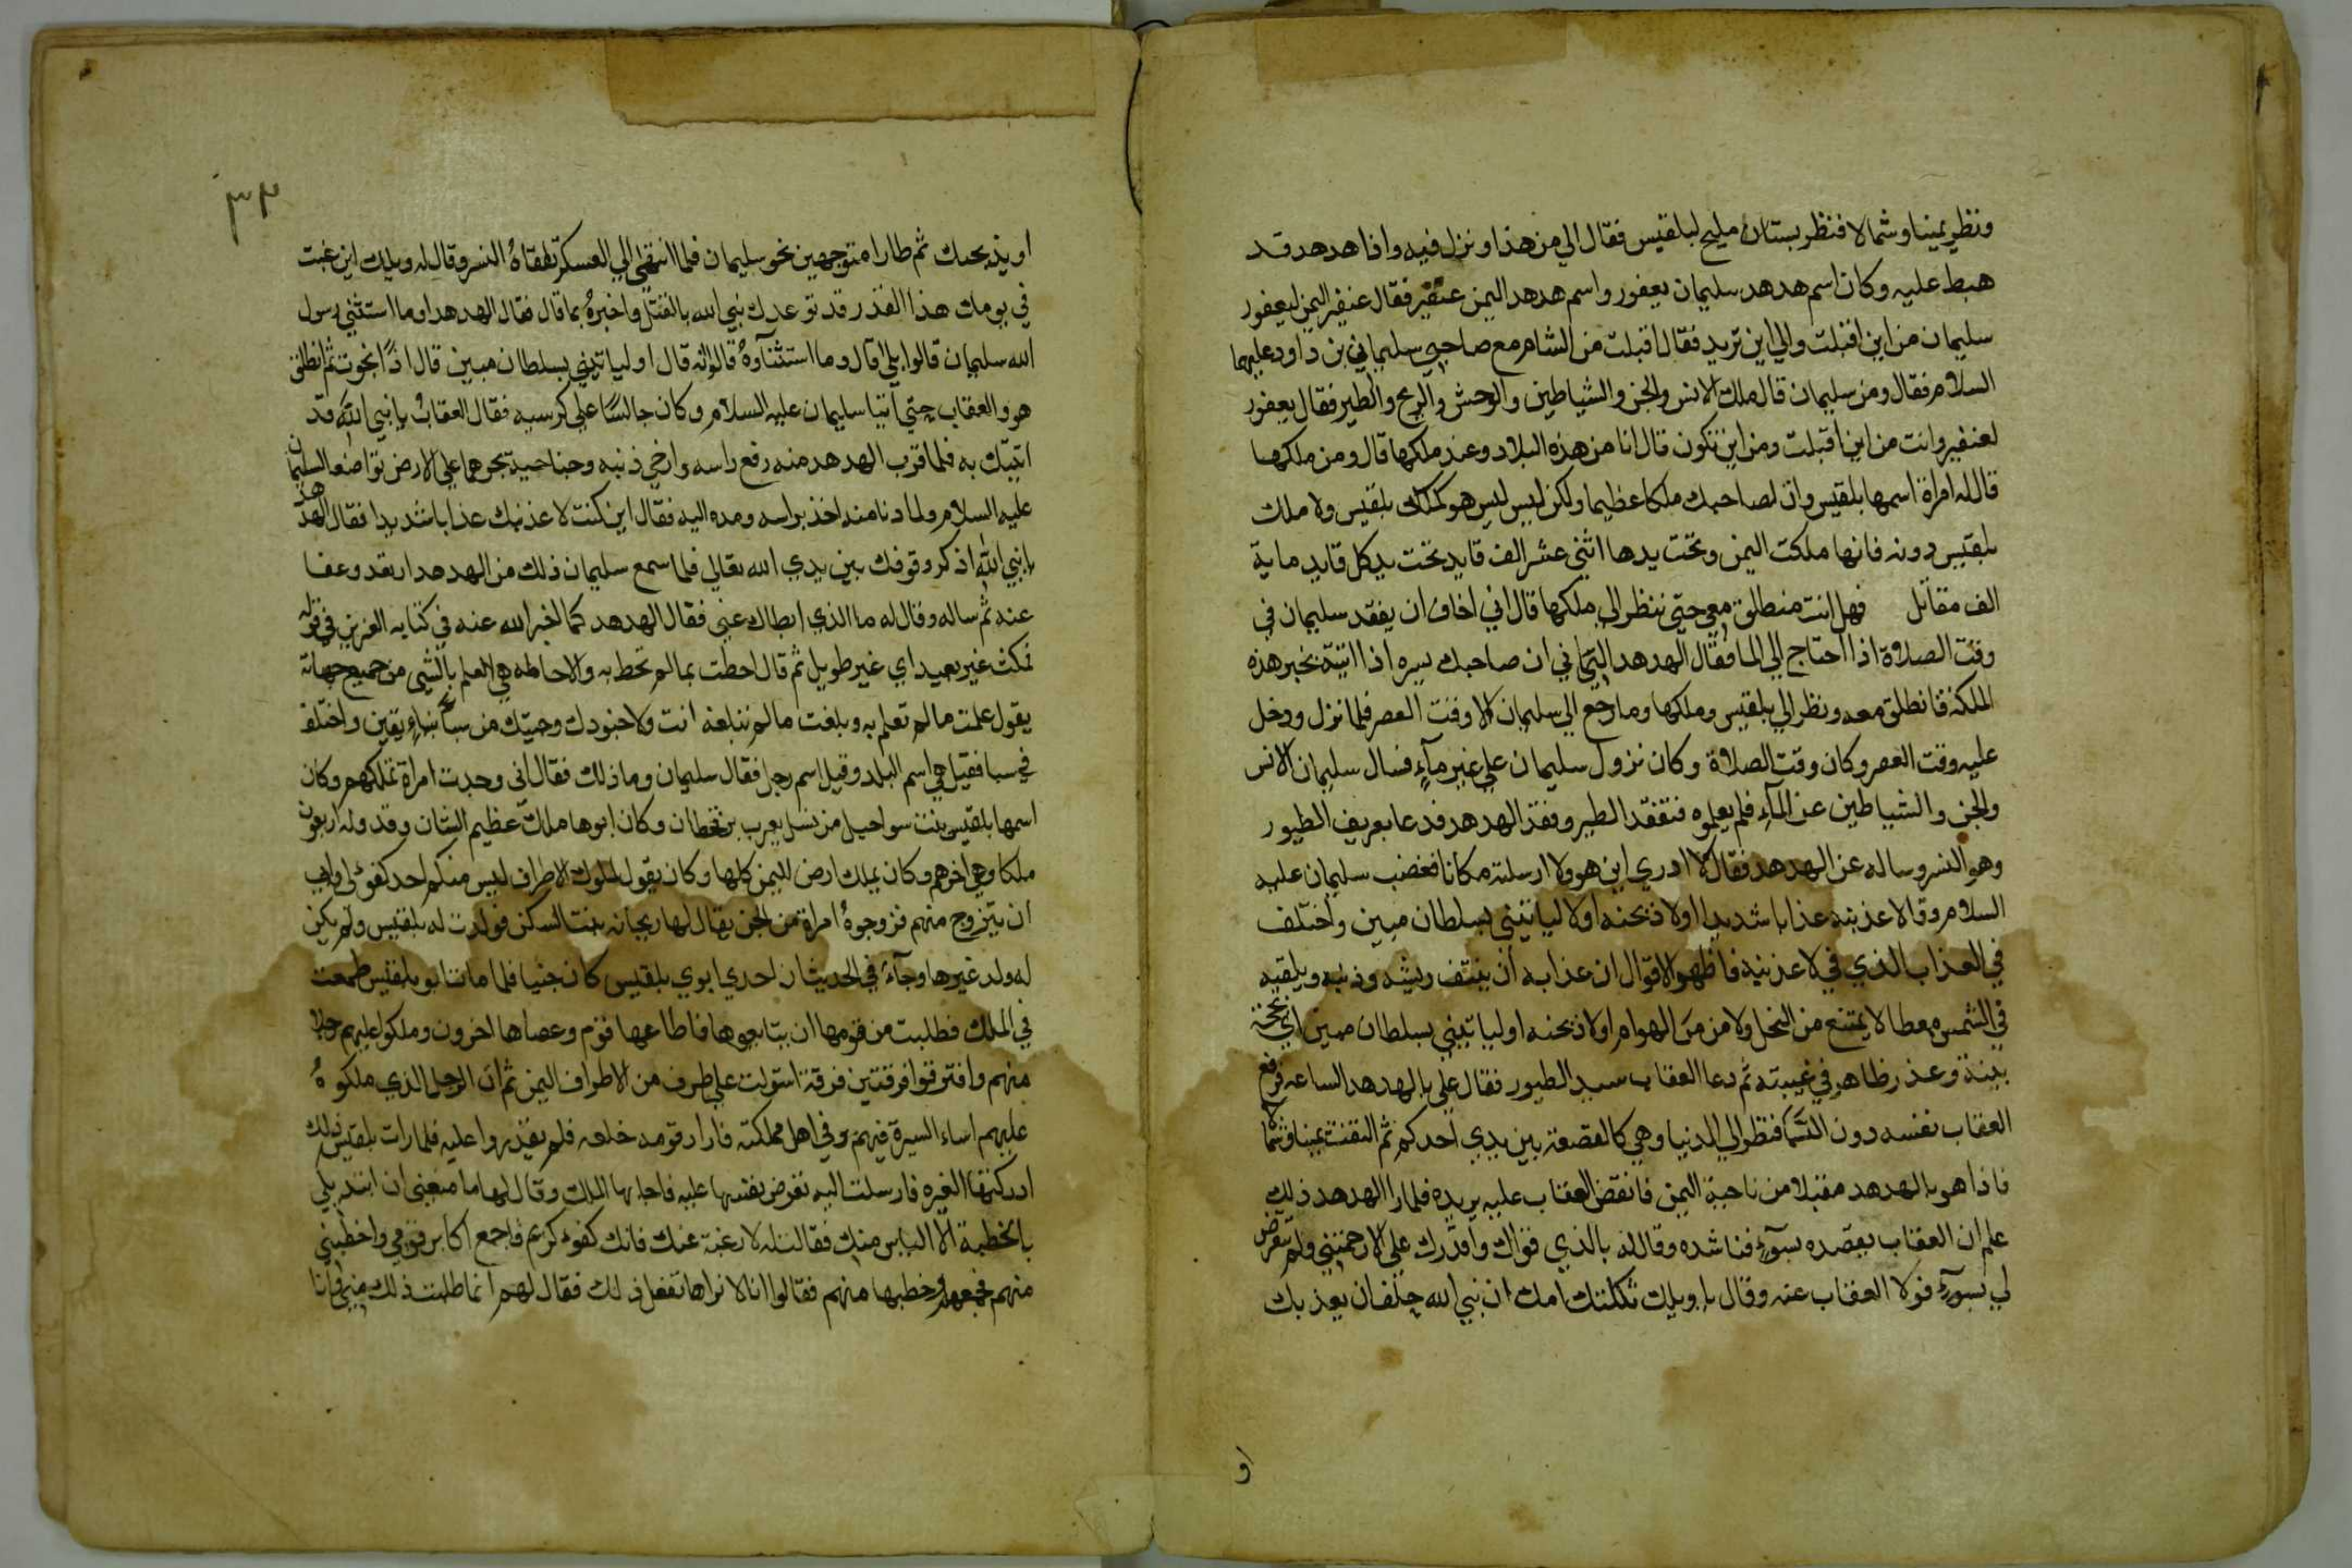 ونظر يمينا وشمالا فنظر بستان مليح لبلقيس فقال الي من هذا ونزل فيه واذا هدهد قد
هبط عليه وكان اسم هدهد سليمان يعفور واسم هدهد اليمن عنقير فقال عنيفر اليمن ليعفور
سليمان من اين اقبلت والي اين تريد فقال اقبلت من الشام مع صاحبي سليمان بن داود عليهما
السلام فقال ومن سليمان قال ملك الانس والجن والشياطين والوحش والريح والطير فقال يعفور
لعنفير وانت من اين اقبلت ومن اين تكون قال انا من هذه البلاد وعند ملكها قال ومن ملكها
قال له امراة اسمها بلقيس وان لصاحبك ملكا عظيما ولكن ليس ليس هو كملك بلقيس ولا ملك
بلقيس دونه فانها ملكت اليمن وتحت يدها اثني عشر الف قايد تحت يد كل قايد ماية
الف مقاتل فهل انت منطلق معي حتي ننظر الي ملكها قال اني اخاف ان يفقد سليمان في
وقت الصلاة اذا احتاج الي الما فقال الهدهد اليماني ان صاحبك يسره اذا اتيته بخبر هذه
الملكة فانطلق معه ونظر الي بلقيس وملكها وما رجع الي سليمان الا وقت العصر فلما نزل ودخل
عليه وقت العصر وكان وقت الصلاة وكان نزول سليمان علي غير مآءٍ فسال سليمان الانس
والجن والشياطين عن المآءِ فلم يعلموه فتفقد الطير وفقد الهدهد فدعا بعريف الطيور
وهو النسر وساله عن الهدهد فقال لا ادري اين هو ولا ارسلته مكانا فغضب سليمان عليه
السلام وقال لاعذبنه عذابا شديدا اولا ذبحنه اولا لياتيني بسلطان مبين واختلف
في العذاب الذي في لاعذبنه فاظهر الاقوال ان عذابه ان ينتف ريشه وذنبه ويلقيه
في الشمس معطا لا يمتنع من النحل ولا من من الهوام اولا ذبحنه او لياتيني بسلطان مبين اي بحجة
بينة وعذر ظاهر في غيبته ثم دعا العقاب سيد الطيور فقال علي بالهدهد الساعه فرفع
العقاب نفسه دون السما فنظر الي الدنيا وهي كالقصعة بين يدي احدكم ثم التفت يمينا وشمالا
فاذا هو بالهدهد مقبلا من ناحية اليمن فانقض العقاب عليه يريده فلما را الهدهد ذلك
علم ان العقاب يقصده بسوءٍ فناشده وقال له بالذي قواك واقدرك علي الا رحمتني ولم تتعرض
لي بسوءٍ فولا العقاب عنه وقال يا ويلك ثكلتك امك ان نبي الله حلف ان يعذبك
او
٣٢
او يذبحك ثم طارا متوجهين نحو سليمان فلما انتهي الي العسكر تلقاهُ النسر وقال له ويلك اين غبت
في يومك هذا القدر قد توعدك نبي الله بالقتل واخبرهُ بما قال فقال الهدهد اوما استثني رسول
الله سليمان قالوا بلي قال وما استثناوهُ قالوا انه قال او لياتيني بسلطان مبين قال اذاً نجوت ثم انطلق
هو والعقاب حتي اتيا سليمان عليه السلام وكان جالسًا علي كرسيه فقال العقاب يا نبي الله قد
اتيتك به فلما قرب الهدهد منه رفع راسه وارخي ذنبه وجناحيه يجرهما علي الارض تواضعا لسليمان
عليه السلام ولما دنا منه اخذ براسه ومده اليه فقال اين كنت لاعذبنك عذابا شديدا فقال الهدهد
يا نبي الله اذكر وقوفك بين يدي الله تعالي فلما سمع سليمان ذلك من الهدهد ارتعد وعفا
عنه ثم ساله وقال له ما الذي ابطاك عني فقال الهدهد كما اخبر الله عنه في كتابه العزيز في قوله
فمكث غير بعيد اي غير طويل ثم قال احطت بما لم تحط به والاحاطه هي العلم بالشي من جميع جهاته
يقول علمت ما لم تعلم به وبلغت ما لم تبلغه انت ولا جنودك وجيتك من سبأ بنباءٍ يقين واختلف
في سبا فقيل هي اسم البلد وقيل اسم رجل فقال سليمان وما ذلك فقال اني وجدت امراة تملكهم وكان
اسمها بلقيس بنت سواحيل من نسل يعرب بن قحطان وكان ابوها ملك عظيم الشان وقد وله اربعون
ملكا وهي اخرهم وكان يملك ارض اليمن كلها وكان يقول لملوك الاطراف ليس منكم احد كفوٌ لي وابي
ان يتزوج منهم فزوجوهُ امراة من الجن يقال لها ريحانه بنت السكن فولدت له بلقيس ولم يكن
له ولد غيرها وجآءَ في الحديث ان احدي ابوي بلقيس كان جنيا فلما مات ابو بلقيس طمعت
في الملك فطلبت من قومها ان يتابعوها فاطاعها قوم وعصاها اخرون وملكوا عليهم رجلا
منهم وافترقوا فرقتين فرقة استولت علي طرف من الاطراف اليمن ثم ان الرجل الذي ملكوهُ
عليهم اساء السيرة فيهم وفي اهل مملكته فاراد قومه خلعه فلم يقدروا عليه فلما رات بلقيس ذلك
ادركتها الغيره فارسلت اليه تعرض نفسها عليه فاجابها الملك وقال لها ما منعني ان ابتديكي
بالخطبة الا الياس منك فقالت له لا رغبة عنك فانك كفوءٌ كريم فاجمع اكابر قومي واخطبني
منهم فجمعهم وخطبها منهم فقالوا انا لا نراها تفعل ذلك فقال لهم انما طلبت ذلك مني فانا